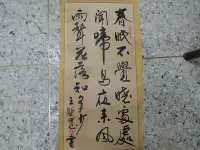 春眠不覺曉處處
聞啼鳥夜来風
雨聲花落知多少
王書